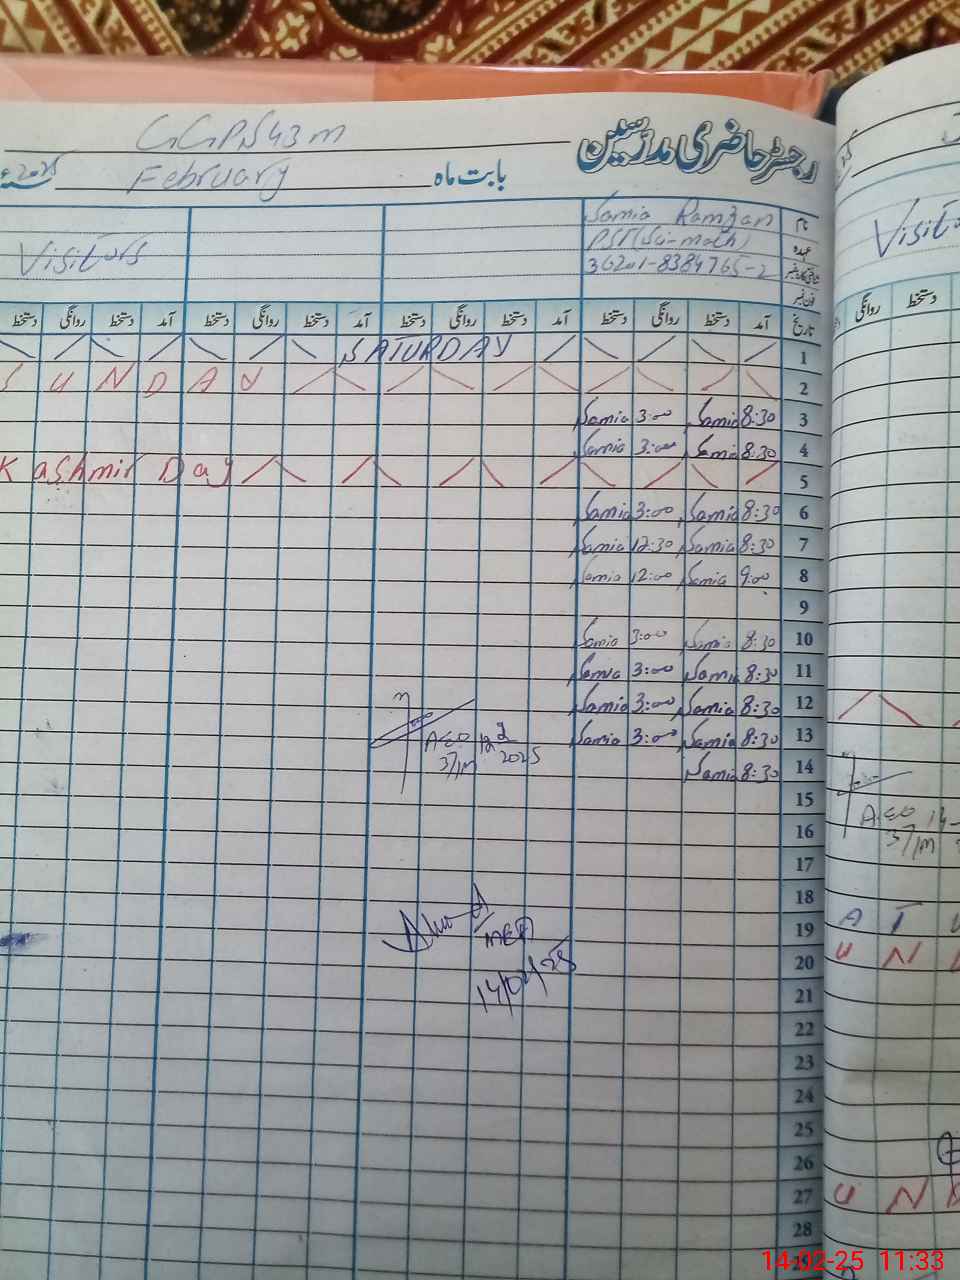 GGPS 43 m
رجسٹر حاضری مدرسین
بابت ماہ February 2025
نام Samia Ramzan
عہدہ PST (Sci-math)
شناختی کارڈ نمبر 36201-8384765-2
فون نمبر
Visitors
تاریخ آمد دستخط روانگی دستخط آمد دستخط روانگی دستخط آمد دستخط روانگی دستخط آمد دستخط روانگی دستخط
1 SATURDAY
2 SUNDAY
3 8:30 Samia 3:00 Samia
4 8:30 Samia 3:00 Samia
5 Kashmir Day
6 8:30 Samia 3:00 Samia
7 8:30 Samia 12:30 Samia
8 9:00 Samia 12:00 Samia
9
10 8:30 Samia 3:00 Samia
11 8:30 Samia 3:00 Samia
12 8:30 Samia 3:00 Samia
13 8:30 Samia 3:00 Samia
14 8:30 Samia
15
16
17
18
19
20
21
22
23
24
25
26
27
28
AEO 12 2
37/m 2025
MEA
14/02/25
دستخط روانگی
AEO 14
37/m
A T U
U N
U N
14-02-25 11:33